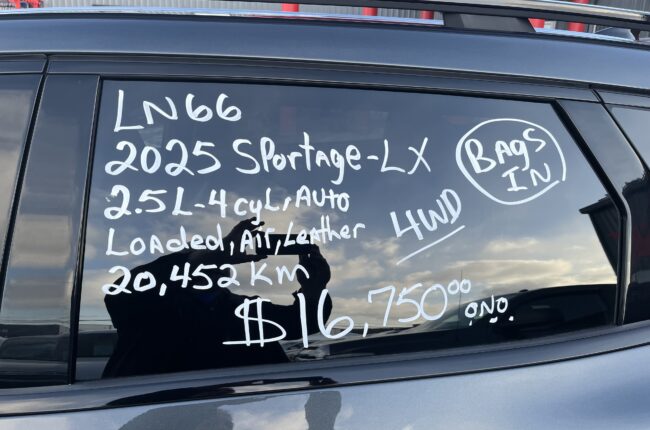 LN66
2025 Sportage-LX
BAgs IN
2.5L-4cyL, Auto
4WD
Loaded, Air, Leather
20,452 Km
$16,750.00 O.N.O.